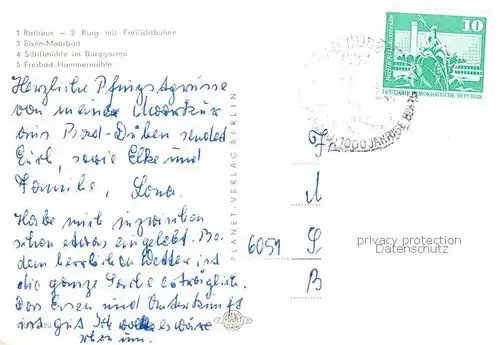 1 Rathaus – 2 Burg mit Freilichtbühne
3 Eisen-Moorbad
4 Schiffmühle im Burggarten
5 Freibad Hammermühle
Herzliche Pfingstgrüsse
von meiner Moorkur
aus Bad-Düben sendet
Euch, sowie Elke und
Familie, Lona.
Habe mich inzwischen
schon etwas eingelebt. Bei
dem herrlichen Wetter ist
die ganze Sache erträglich.
Das Essen und Unterkunft
ist gut. Ich
PLANET-VERLAG BERLIN
10
DEUTSCHE DEMOKRATISCHE REPUBLIK
BAD DÜBEN
1000 JAHRE BURG
Fr
6051
privacy protection
Datenschutz